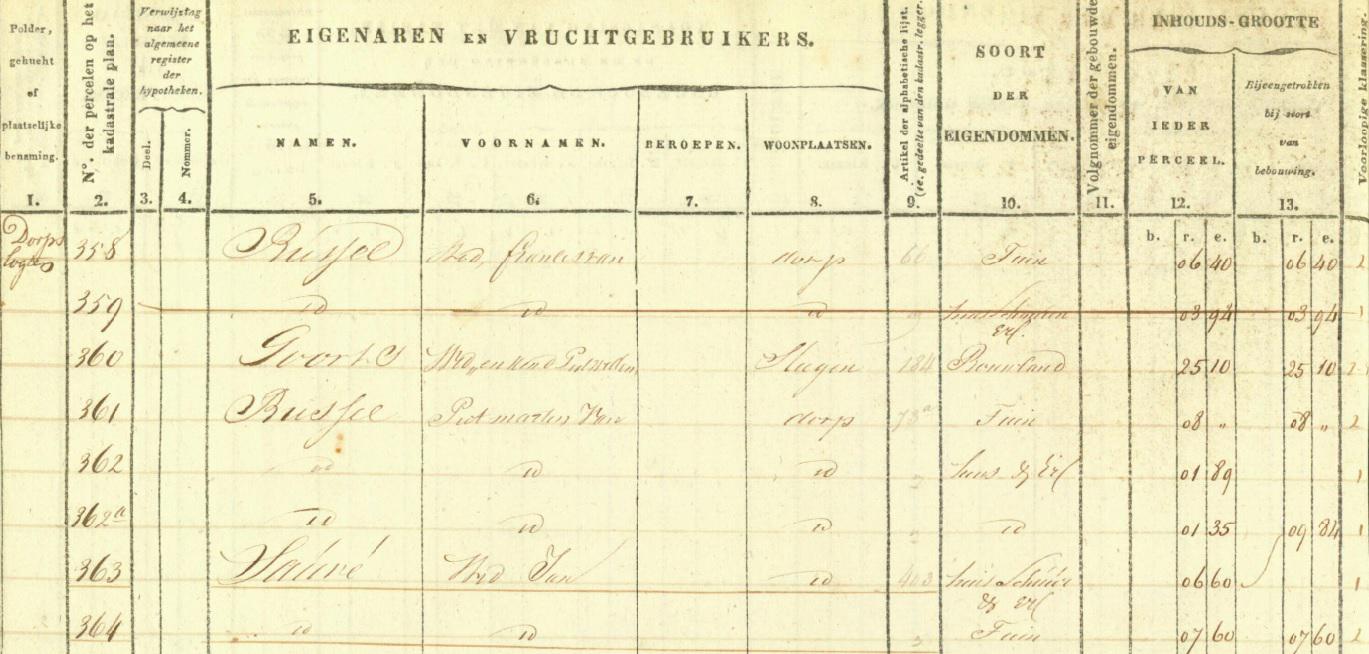 EIGENAREN EN VRUCHTGEBRUIKERS.
INHOUDS-GROOTTE
Polder, gehucht of plaatselijke benaming.
N°. der percelen op het kadastrale plan.
Verwijzing naar het algemeene register der hypotheken.
Deel.
Nommer.
NAMEN.
VOORNAMEN.
BEROEPEN.
WOONPLAATSEN.
Artikel der alphabetische lijst.
SOORT DER EIGENDOMMEN.
Volgnommer der gebouwde eigendommen.
VAN IEDER PERCEEL.
Bijeengetrokken bij soort van bebouwing.
Voorloopige klassering.
1. 2. 3. 4. 5. 6. 7. 8. 9. 10. 11. 12. 13.
b. r. e. b. r. e.
Dorps
358 Russel Wed, dorp 66 Tuin 06 40 06 40 2
359 id id id Erf. 03 94 03 94 1
360 Goorts Wed, en Kind 184 Bouwland 25 10 25 10 2
361 Russel Piet marten dorp 73a Tuin 08 „ 08 „ 2
362 id id id huis & Erf 01 89 1
362a id id id id 01 35 09 84 1
363 Sauvé Wed Jan id 403 huis Schuur 06 60 1
& Erf
364 id id Tuin 07 60 07 60 2